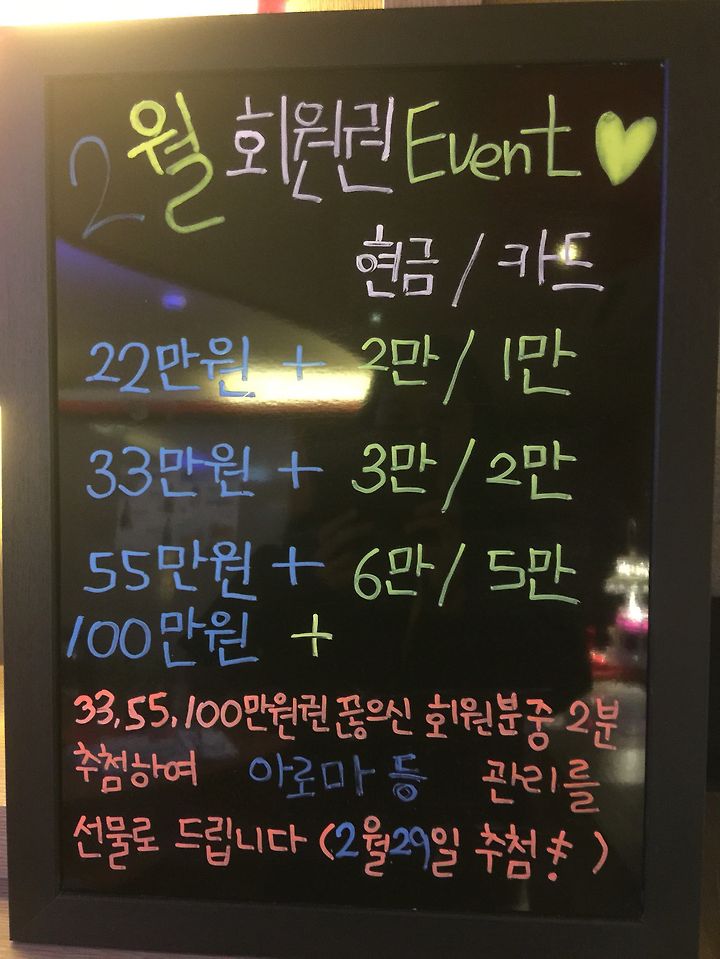 2월 회원권 Event
현금 / 카드
22만원 + 2만 / 1만
33만원 + 3만 / 2만
55만원 + 6만 / 5만
100만원 +
33,55,100만원권 끊으신 회원분중 2분
추첨하여 아로마 등 관리를
선물로 드립니다 (2월29일 추첨!)